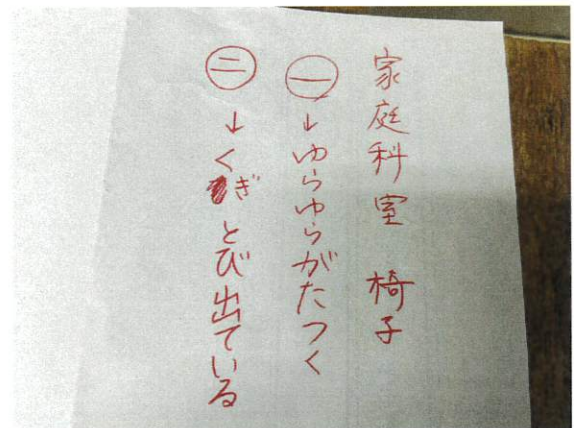 家庭科室 椅子
㊀→ゆらゆらがたつく
㊁→くぎ とび出ている